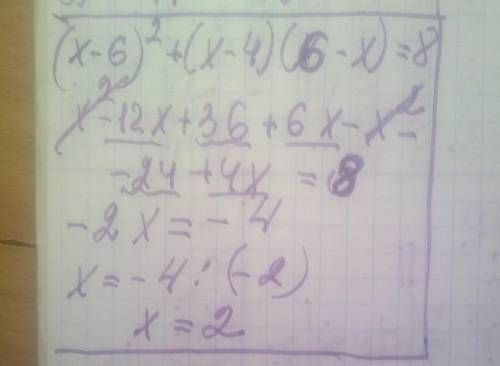 (x-6)²+(x-4)(6-x)=8
x²-12x+36+6x-x²-
-24+4x=8
-2x=-4
x=-4:(-2)
x=2